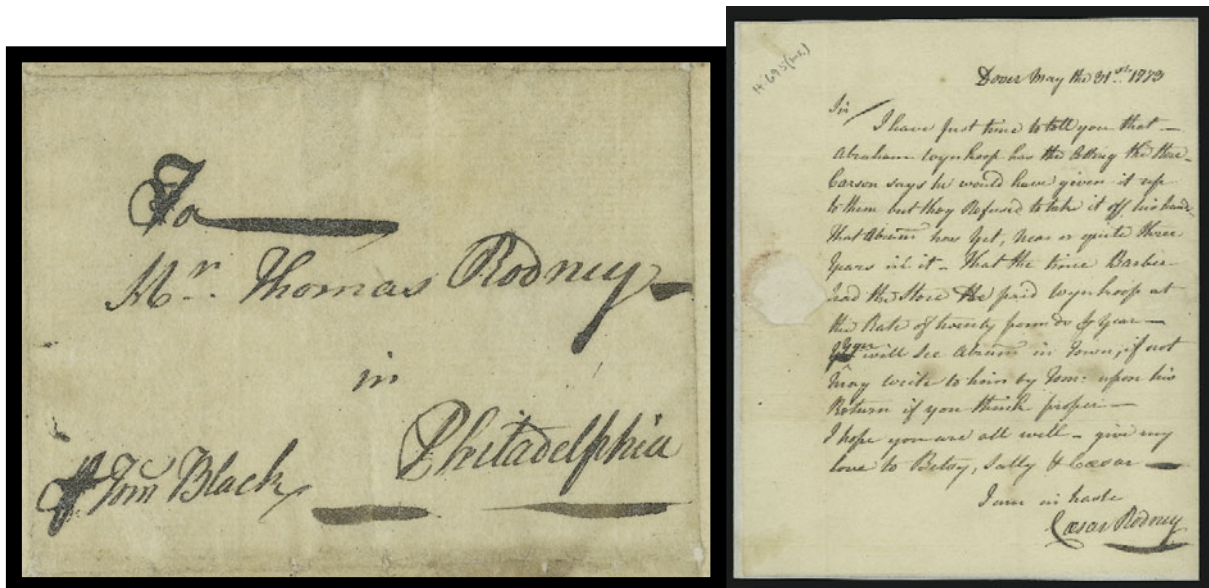 To
Mr. Thomas Rodney
in
Philadelphia
Tom Black
H-695
Dover May the 31st 1773
Sir
I have Just time to tell you that —
Abraham Wynkoop has the letting the Store
Carson says he would have given it up
to them but they Refused to take it off his hands
that Abram has Yet, near or quite three
Years in it — That the time Barber
had the Store he paid Wynkoop at
the Rate of twenty pounds Year —
will See Abram in Town, if not
may write to him by Tom: upon his
Return if you think proper —
I hope you are all well — give my
love to Betsy, Sally & Caesar —
I am in haste
Caesar Rodney